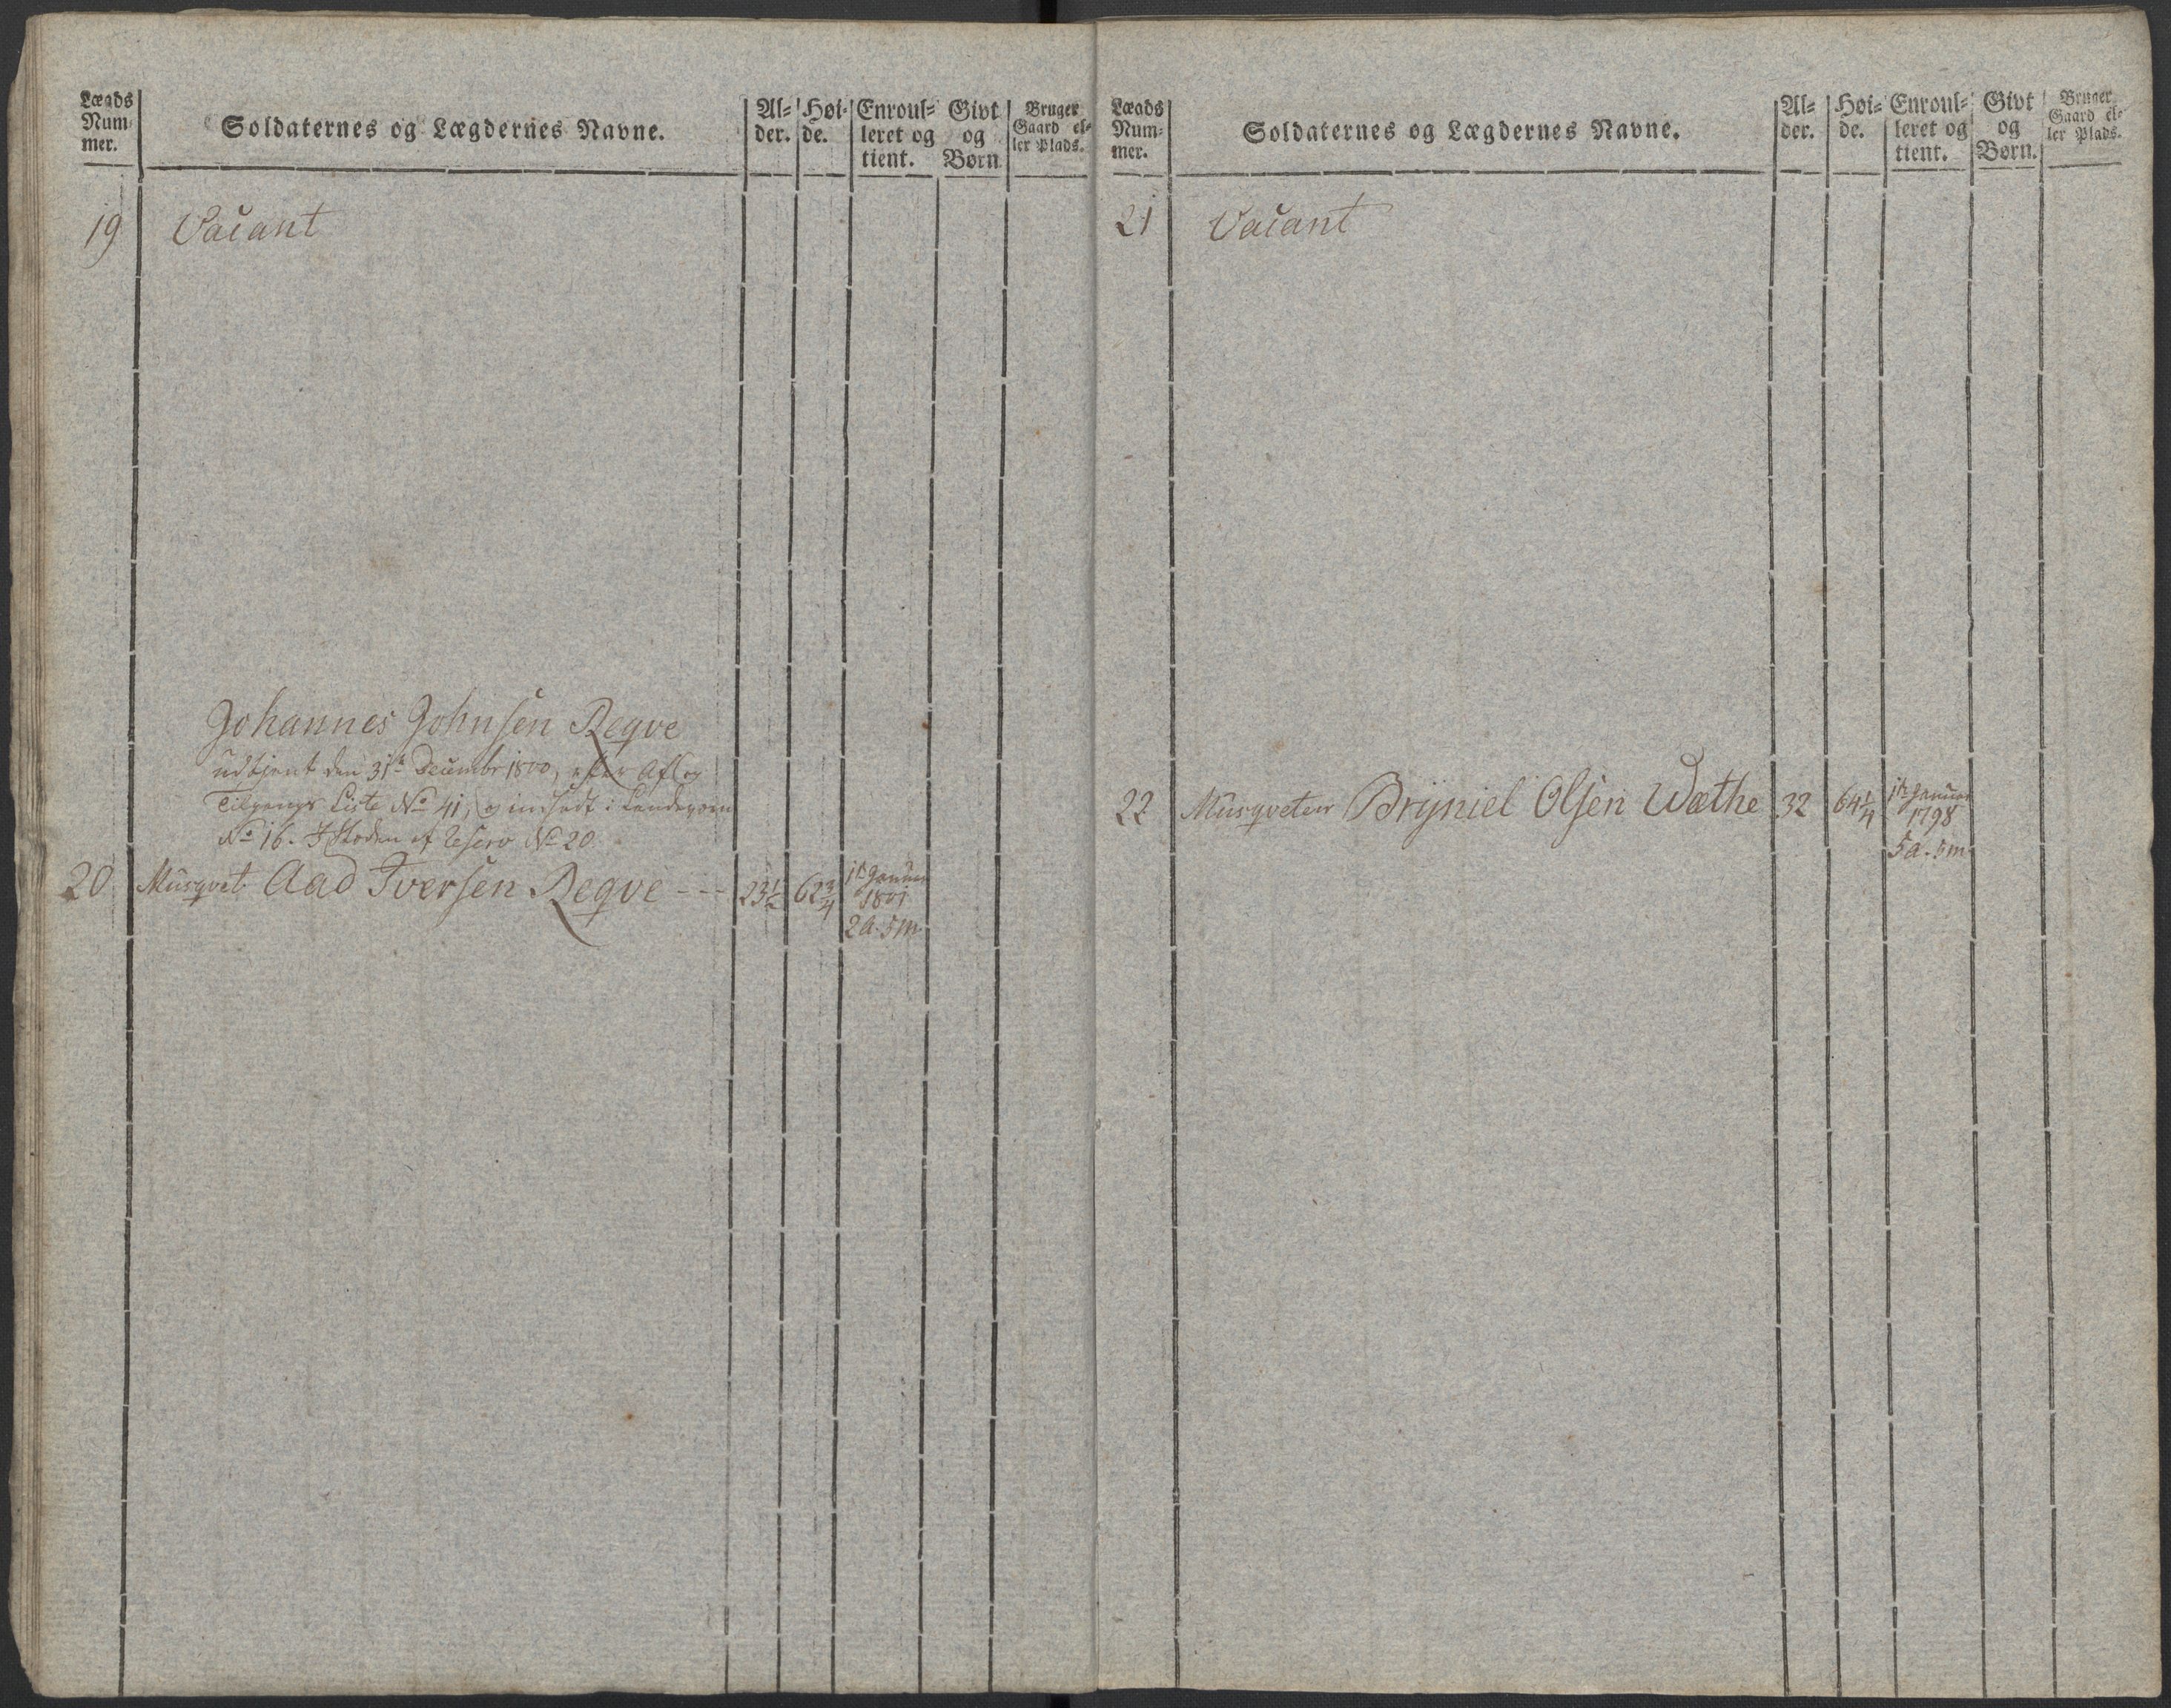 Lægds
Num-
mer.
Soldaternes og Lægdernes Navne.
Al-
der.
Høi-
de.
Enroul-
leret og
tient.
Givt
og
Børn.
Bruger
Gaard el-
ler Plads.
19 Vacant
Johannes Johnsen Reqve
udtjent den 31te Decembr 1800, efter Afl og
Tilgangs Liste No 41, og indsadt i Landeværn
No 16. I Stæden af Reserv No 20
20 Musqvet Aad Iversen Reqve --- 23½ 62¾ 1te Januar
1801
2a. 5m
Lægds
Num-
mer.
Soldaternes og Lægdernes Navne.
Al-
der.
Høi-
de.
Enroul-
leret og
tient.
Givt
og
Børn.
Bruger
Gaard el-
ler Plads.
21 Vacant
22 Musqveteer Brÿniel Olsen Wæthe 32 64¼ 1te Januar
1798
5a. 5m